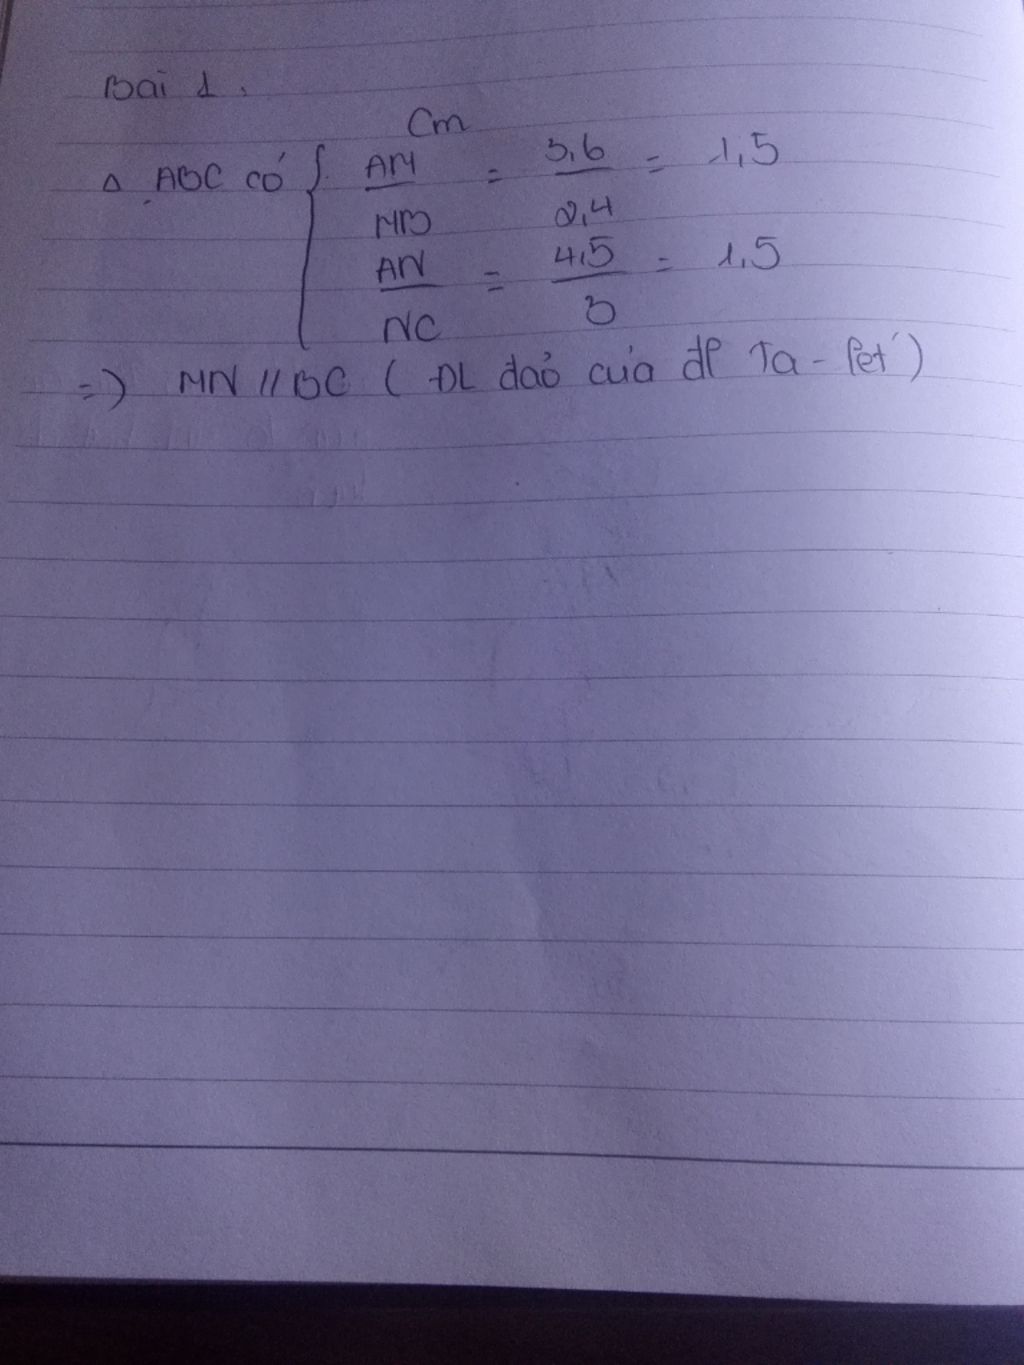 Bài 1.
Cm
△ ABC có { AM/MB = 3,6/2,4 = 1,5
AN/NC = 4,5/3 = 1,5
=) MN // BC ( ĐL đảo của đl Ta - lét )